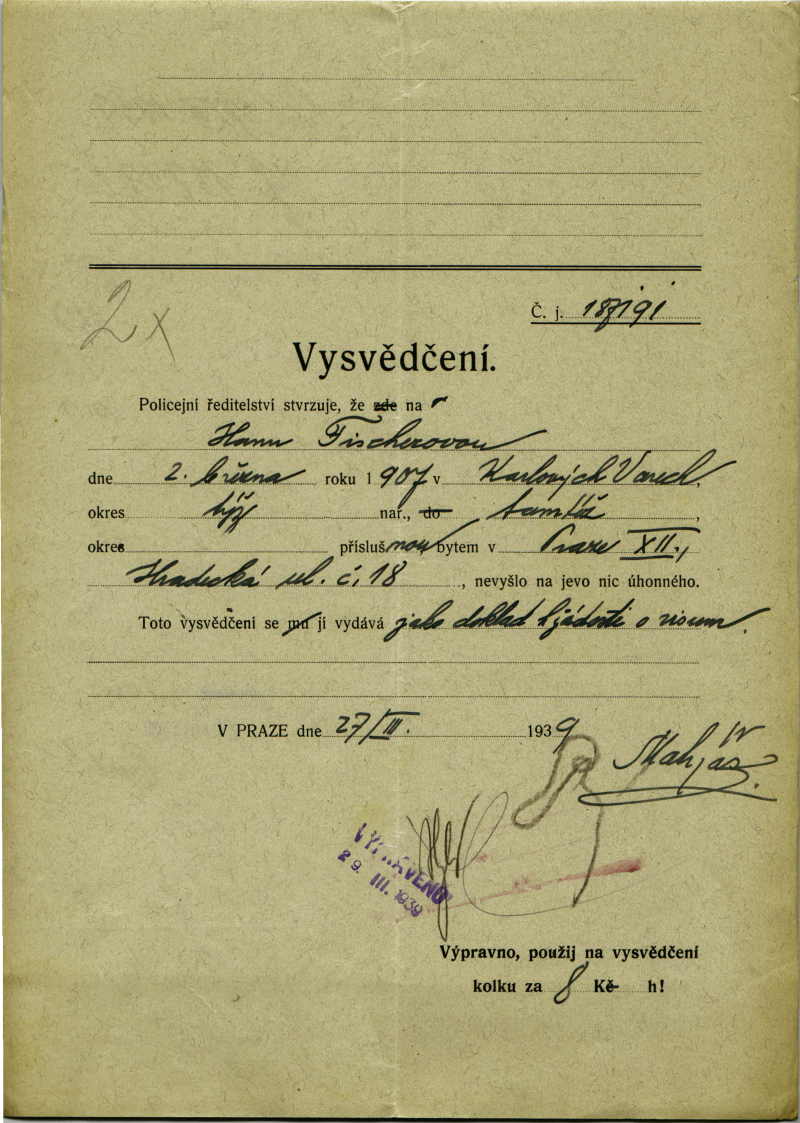 2x
Č. j.
Vysvědčení.
Policejní ředitelství stvrzuje, že zde na
Hanu Fischerovou
dne 2. března roku 1907 v Karlových Varech,
okres týž nar., do tamtéž,
okres příslušnou bytem v Praze XII.,
Hradecká ul. č. 18, nevyšlo na jevo nic úhonného.
Toto vysvědčení se mu jí vydává jako doklad k žádosti o visum.
V PRAZE dne 27/III. 1939
VYPRAVENO
29. III. 1939
Výpravno, použij na vysvědčení
kolku za 8 Kč h!